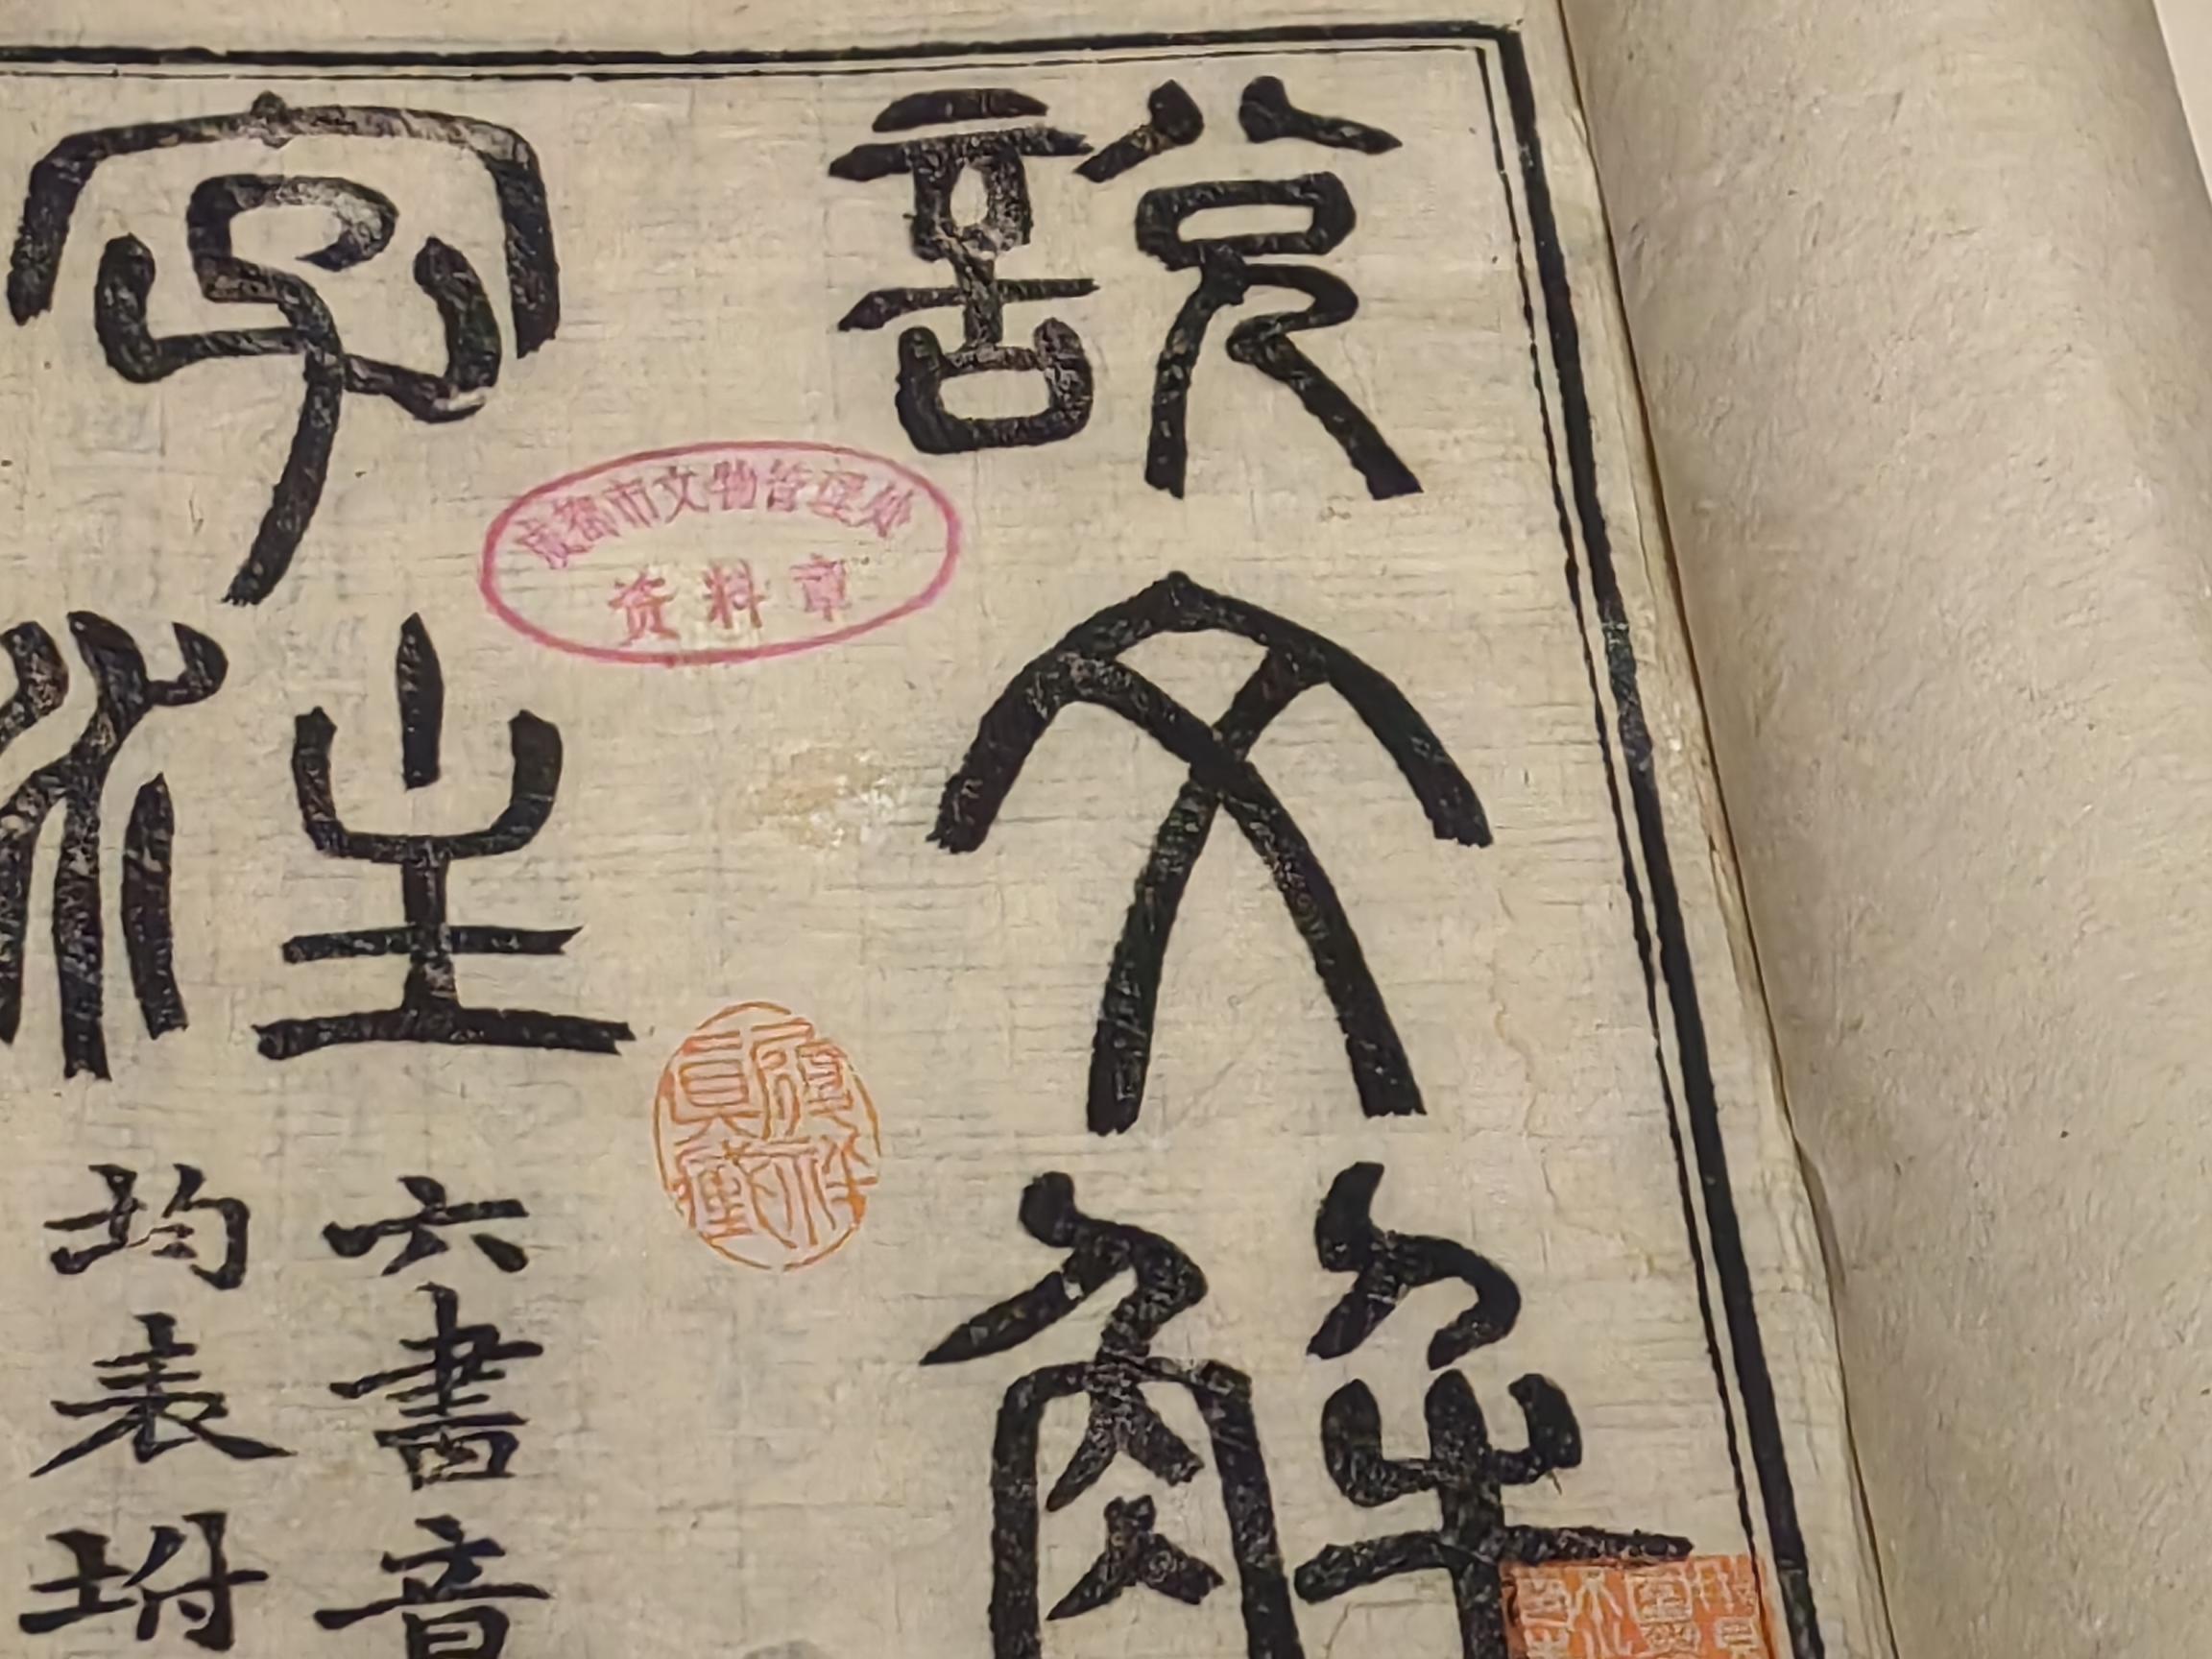 說文解
字注
六書音
均表坿
成都市文物管理处
资料章